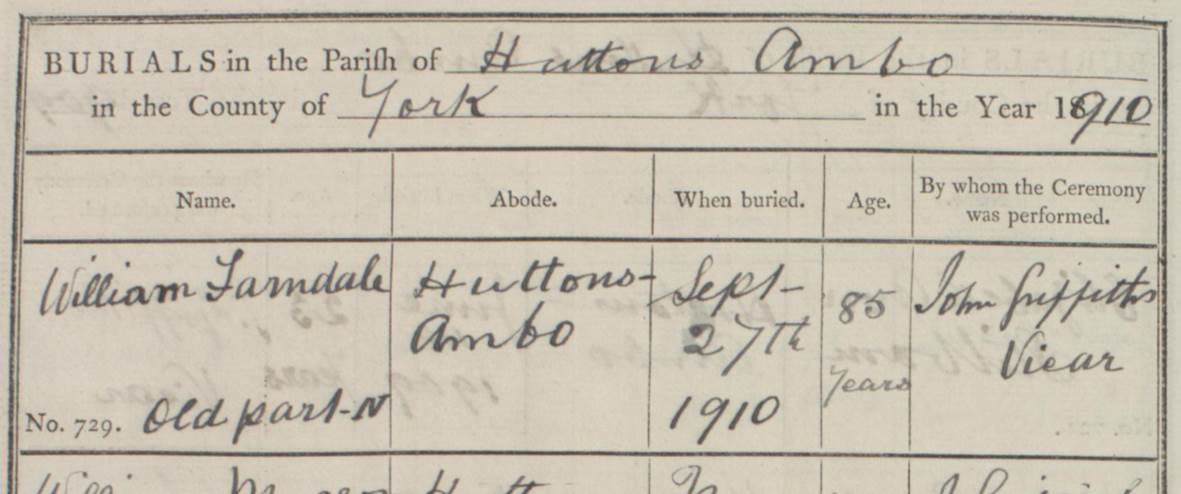 BURIALS in the Parish of Huttons Ambo
in the County of York in the Year 1910
Name. Abode. When buried. Age. By whom the Ceremony was performed.
William Farndale Huttons- Sept- 85 John Griffiths
Ambo 27th Years Vicar
No. 729. Old part-N 1910